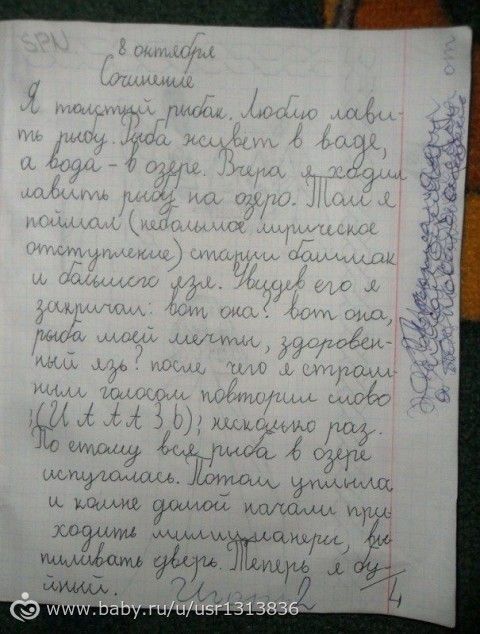 SPN
8 октября
Сочинение
Я толстый рыбак. Люблю лави-
ть рыбу. Рыба живет в ваде,
а вода - в озере. Вчера я ходил
лавить рыбу на озеро. Там я
поймал (небольшое лирическое
отступление) старый башмак
и большого язя. Увидев его я
закричал: вот она? вот она,
рыба моей мечты, здоровен-
ный язь? после чего я страш-
ным голосом повторил слово
;(И А А А З Ь); несколько раз.
По етому вся рыба в озере
испугалась. Потом уплыла
и комне домой начали при
ходить милицианеры, вы
пиливать дверь. Теперь я бу-
йный.
4
от
www.baby.ru/u/usr1313836